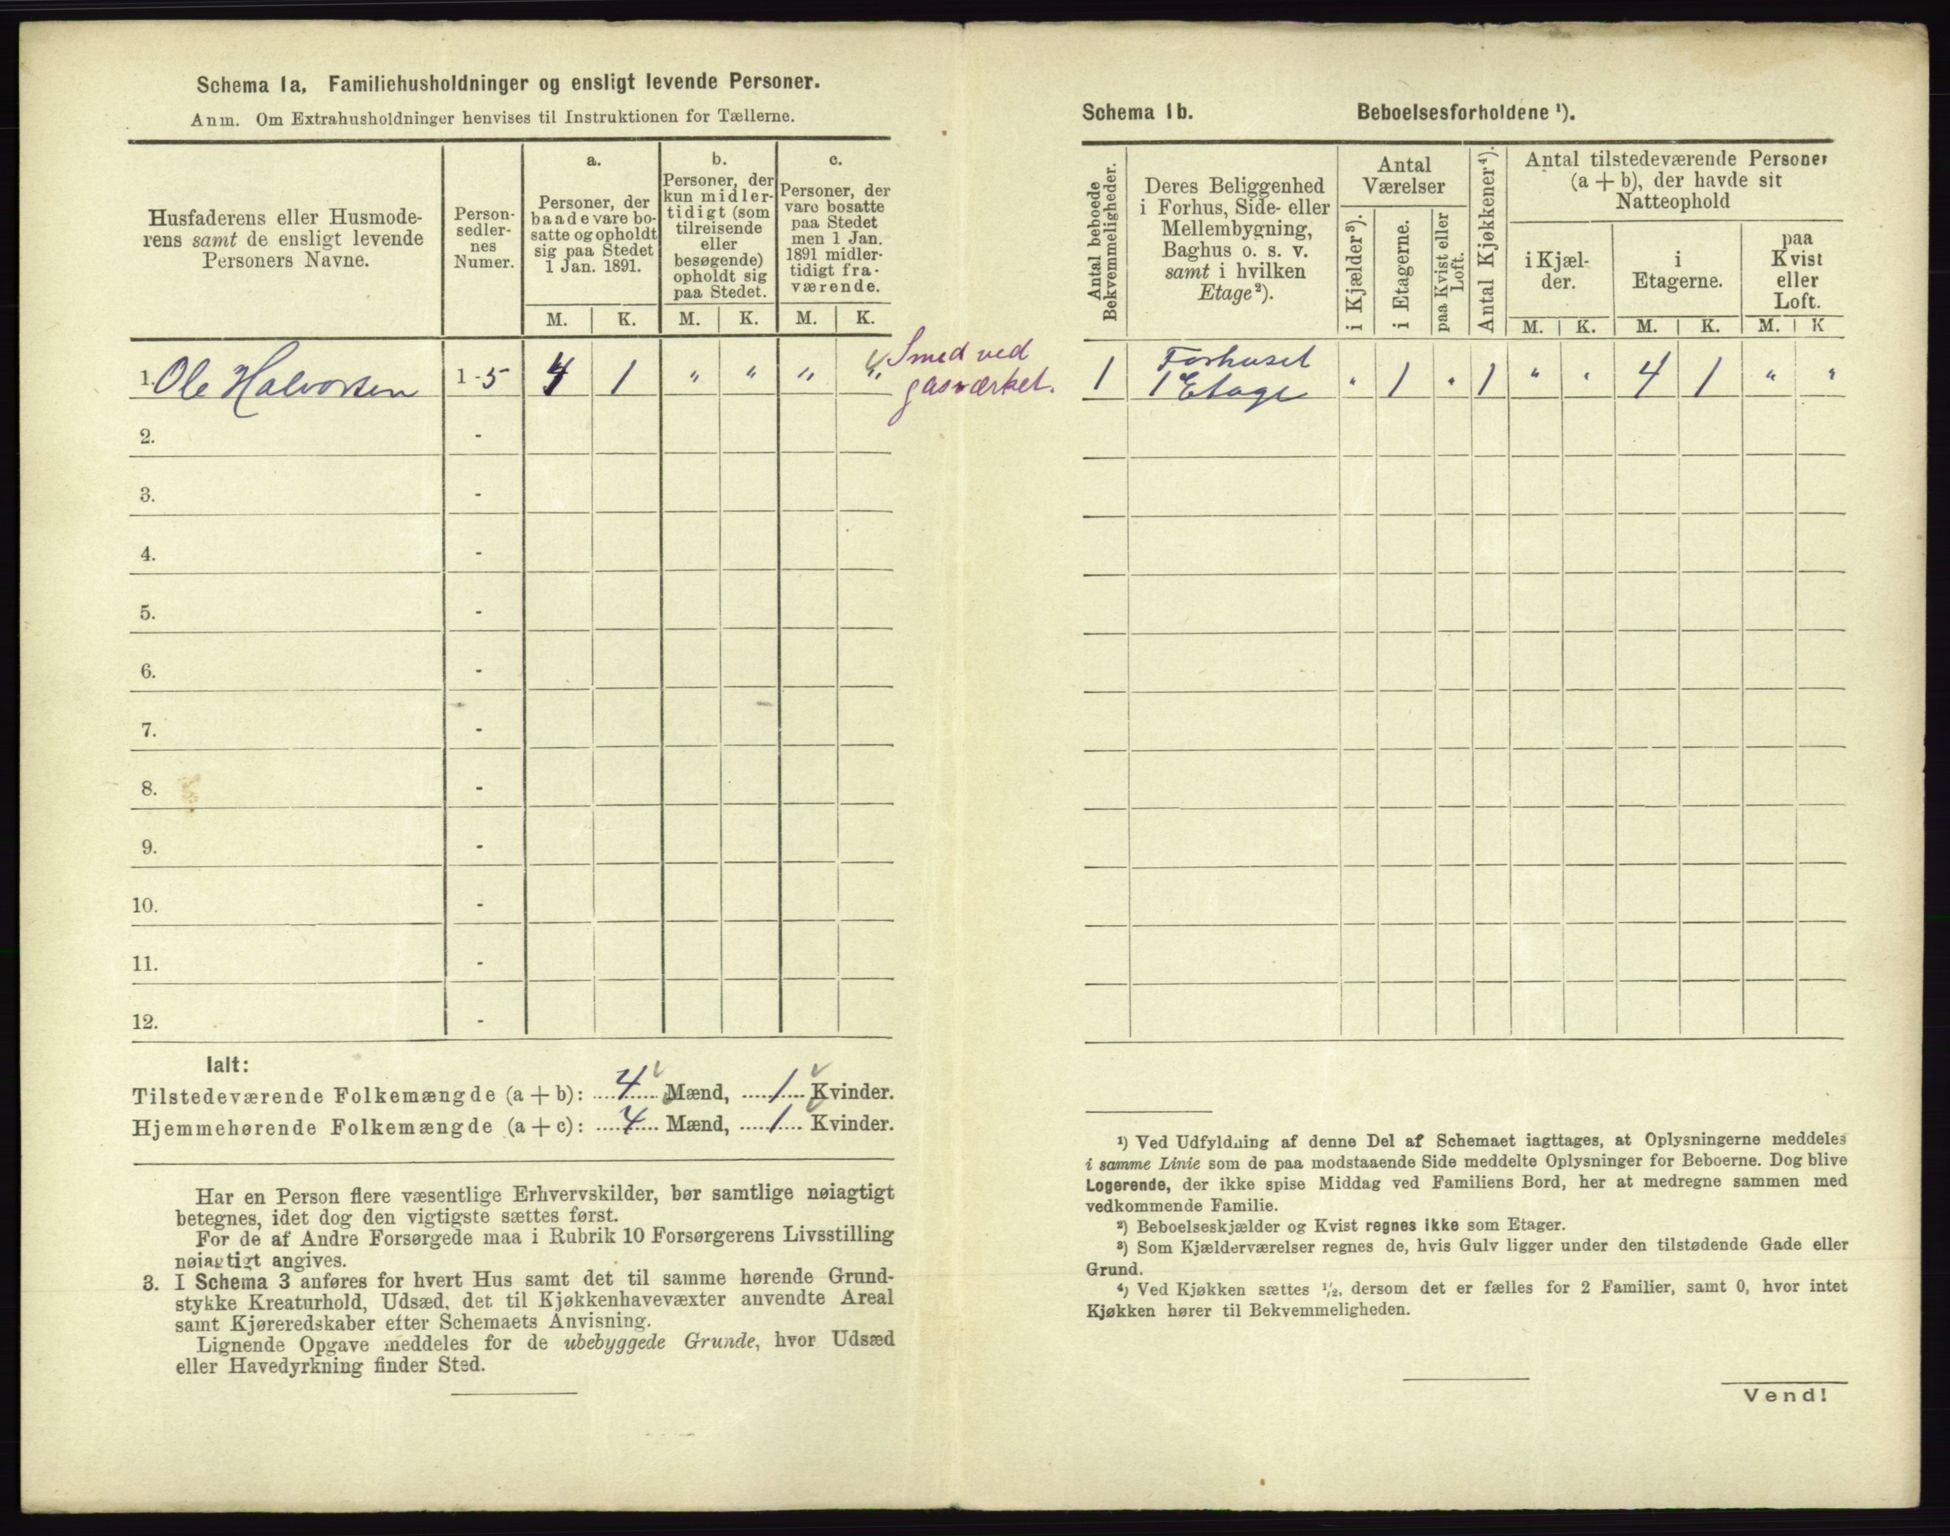 Schema 1a, Familiehusholdninger og ensligt levende Personer.
Anm. Om Extrahusholdninger henvises til Instruktionen for Tællerne.
Husfaderens eller Husmode-
rens samt de ensligt levende
Personers Navne.
Person-
sedler-
nes
Numer.
a.
Personer, der
baade vare bo-
satte og opholdt
sig paa Stedet
1 Jan. 1891.
b.
Personer, der
kun midler-
tidigt (som
tilreisende
eller
besøgende)
opholdt sig
paa Stedet.
c.
Personer, der
vare bosatte
paa Stedet
men 1 Jan.
1891 midler-
tidigt fra-
værende.
M. K. M. K. M. K.
1. Ole Halvorsen 1-5 4 1 " " " " Smed ved
gasværket.
2. -
3. -
4. -
5. -
6. -
7. -
8. -
9. -
10. -
11. -
12. -
Ialt:
Tilstedeværende Folkemængde (a + b): 4 Mænd, 1 Kvinder.
Hjemmehørende Folkemængde (a + c): 4 Mænd, 1 Kvinder.
Har en Person flere væsentlige Erhvervskilder, bør samtlige nøiagtigt
betegnes, idet dog den vigtigste sættes først.
For de af Andre Forsørgede maa i Rubrik 10 Forsørgerens Livsstilling
nøiagtigt angives.
3. I Schema 3 anføres for hvert Hus samt det til samme hørende Grund-
stykke Kreaturhold, Udsæd, det til Kjøkkenhavevæxter anvendte Areal
samt Kjøreredskaber efter Schemaets Anvisning.
Lignende Opgave meddeles for de ubebyggede Grunde, hvor Udsæd
eller Havedyrkning finder Sted.
Schema 1b. Beboelsesforholdene ¹).
Antal beboede
Bekvemmeligheder.
Deres Beliggenhed
i Forhus, Side- eller
Mellembygning,
Baghus o. s. v.
samt i hvilken
Etage²).
Antal
Værelser
i Kjælder³).
i Etagerne.
paa Kvist eller
Loft.
Antal Kjøkkener⁴).
Antal tilstedeværende Personer
(a + b), der havde sit
Natteophold
i Kjæl-
der.
i
Etagerne.
paa
Kvist
eller
Loft.
M. K. M. K. M. K
1 Forhuset
1 Etage " 1 " 1 " " 4 1 " "
¹) Ved Udfyldning af denne Del af Schemaet iagttages, at Oplysningerne meddeles
i samme Linie som de paa modstaaende Side meddelte Oplysninger for Beboerne. Dog blive
Logerende, der ikke spise Middag ved Familiens Bord, her at medregne sammen med
vedkommende Familie.
²) Beboelseskjælder og Kvist regnes ikke som Etager.
³) Som Kjælderværelser regnes de, hvis Gulv ligger under den tilstødende Gade eller
Grund.
⁴) Ved Kjøkken sættes ½, dersom det er fælles for 2 Familier, samt 0, hvor intet
Kjøkken hører til Bekvemmeligheden.
Vend!